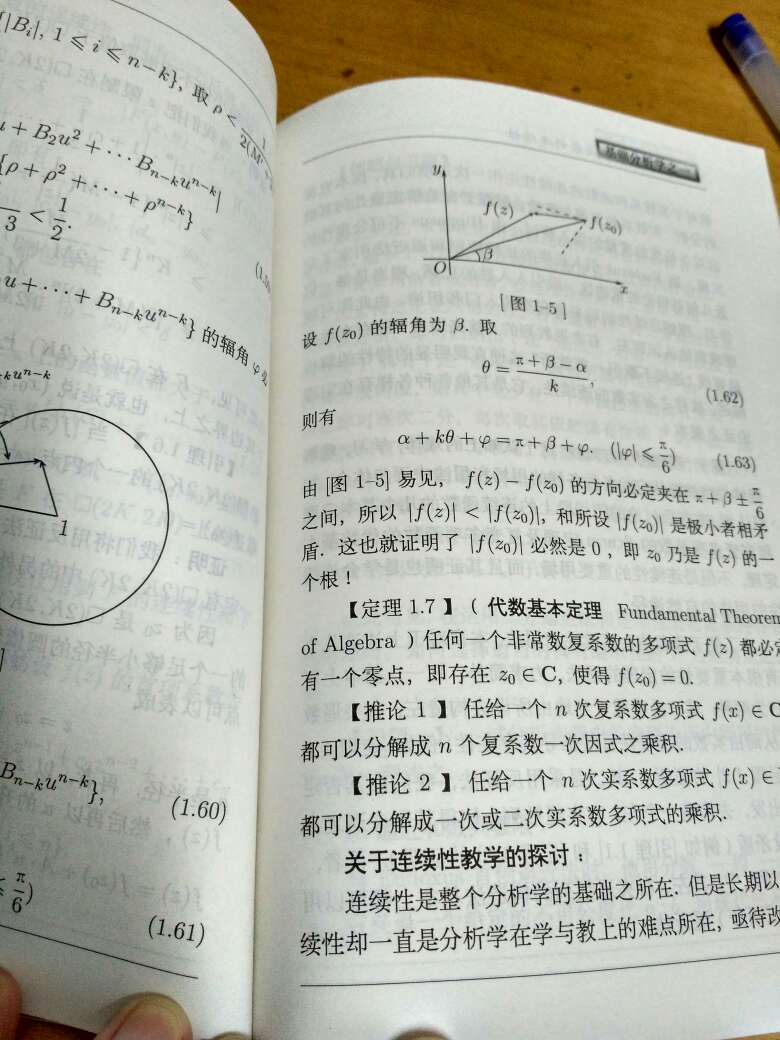 {|Bᵢ|, 1 ⩽ i ⩽ n−k}, 取 ρ <
u + B₂u² + ⋯ Bₙ₋ₖuⁿ⁻ᵏ|
{ρ + ρ² + ⋯ + ρⁿ⁻ᵏ}
3 < 1/2.
u + ⋯ + Bₙ₋ₖuⁿ⁻ᵏ} 的辐角 φ
1
Bₙ₋ₖuⁿ⁻ᵏ},
(1.60)
⩽ π/6)
(1.61)
基础分析学之一
y
f(z)
f(z₀)
β
O
x
[图 1-5]
设 f(z₀) 的辐角为 β. 取
θ = (π + β − α)/k,
(1.62)
则有
α + kθ + φ = π + β + φ. (|φ| ⩽ π/6)
(1.63)
由 [图 1-5] 易见, f(z) − f(z₀) 的方向必定夹在 π + β ± π/6
之间, 所以 |f(z)| < |f(z₀)|, 和所设 |f(z₀)| 是极小者相矛
盾. 这也就证明了 |f(z₀)| 必然是 0 , 即 z₀ 乃是 f(z) 的一
个根 !
【定理 1.7 】( 代数基本定理 Fundamental Theorem
of Algebra ) 任何一个非常数复系数的多项式 f(z) 都必定
有一个零点, 即存在 z₀ ∈ C, 使得 f(z₀) = 0.
【推论 1 】 任给一个 n 次复系数多项式 f(x) ∈ C
都可以分解成 n 个复系数一次因式之乘积.
【推论 2 】 任给一个 n 次实系数多项式 f(x) ∈
都可以分解成一次或二次实系数多项式的乘积.
关于连续性教学的探讨 :
连续性是整个分析学的基础之所在. 但是长期以
续性却一直是分析学在学与教上的难点所在, 亟待改